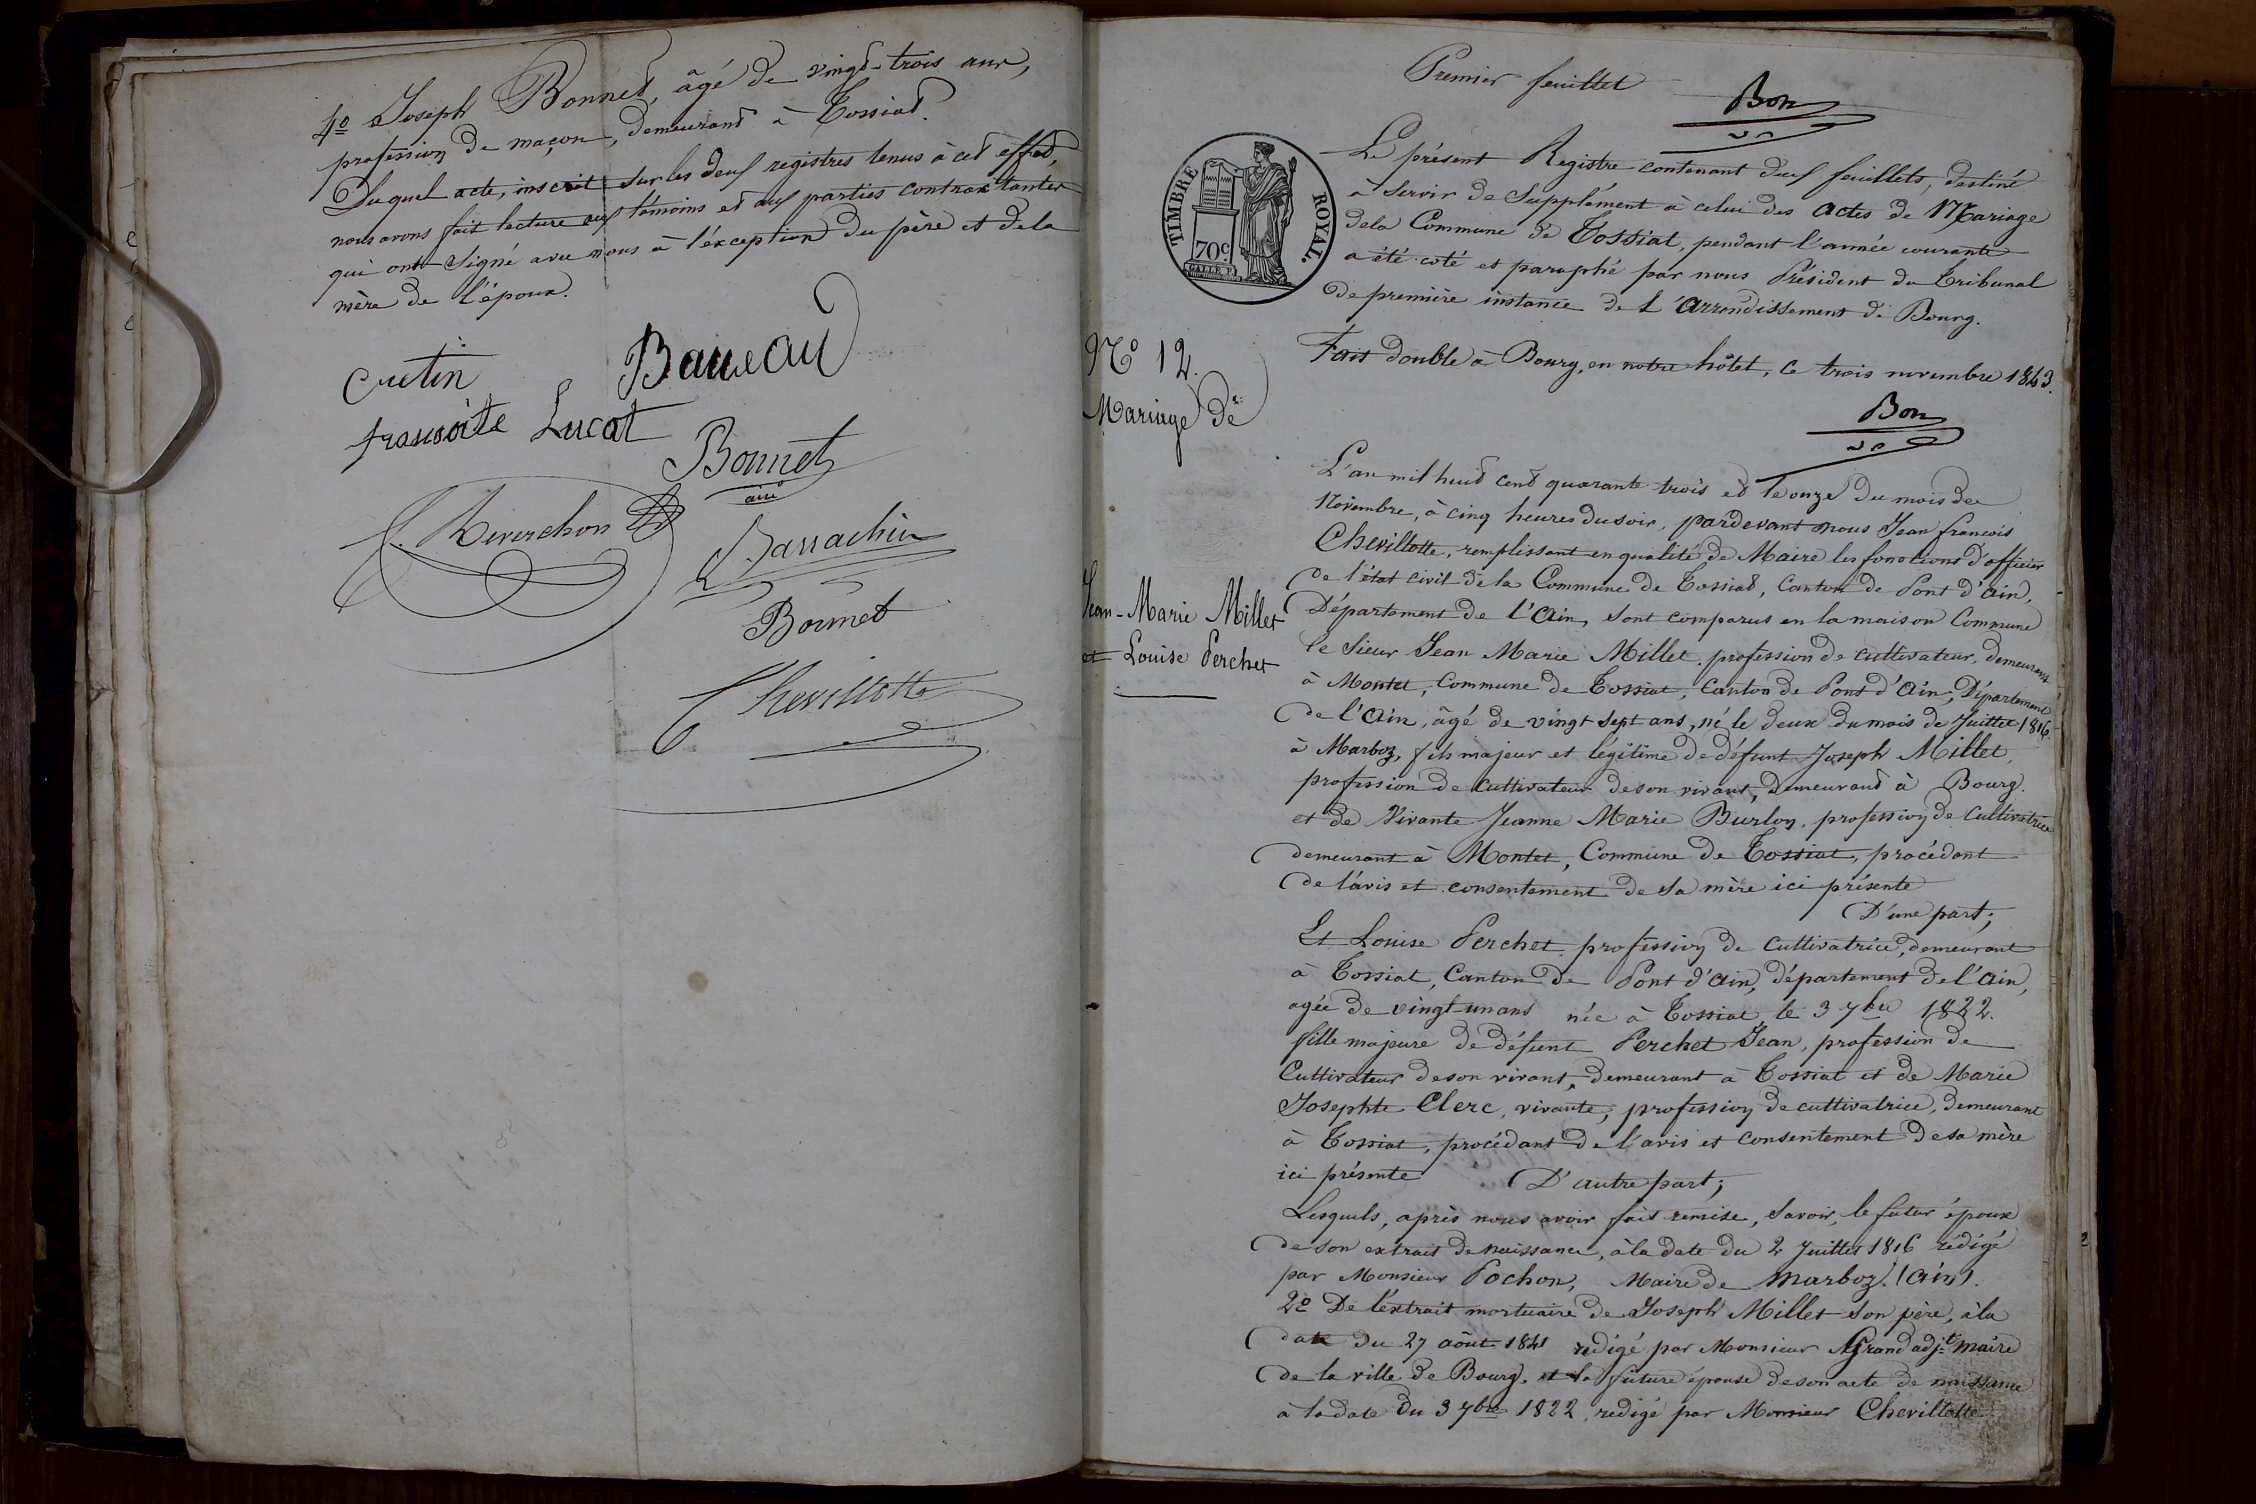 4º Joseph Bonnet, âgé de vingt-trois ans,
profession de maçon, demeurant à Tossiat.
Duquel acte, inscrit sur les deux registres tenus à cet effet,
nous avons fait lecture aux témoins et aux parties contractantes
qui ont signé avec nous à l'exception du père et de la
mère de l'époux.
Cretin
Barreau
Lucat
Bonnet
ainé
Reverchon
Barrachin
Bonnet
Chevillotte
Premier feuillet
Bon
Le présent Registre contenant deux feuillets, destiné
à servir de Supplément à celui des actes de Mariage
dela Commune de Tossiat, pendant l'année courante
a été coté et paraphé par nous Président du Tribunal
de première instance de L'arrondissement de Bourg.
Fait double à Bourg, en notre hôtel, ce trois novembre 1843.
Bon
TIMBRE ROYAL.
70c
Nº 12.
Mariage de
Jean-Marie Millet
et Louise Perchet
L'an mil huit cent quarante trois et le onze du mois de
Novembre, à cinq heures du soir, pardevant nous Jean françois
Chevillotte, remplissant en qualité de Maire les fonctions d'officier
de l'état civil de la Commune de Tossiat, Canton de Pont d'ain,
Département de l'ain, sont comparus en la maison Commune
le Sieur Jean Marie Millet, profession de cultivateur, demeurant
à Montet, Commune de Tossiat, Canton de Pont d'ain, Département
de l'ain, âgé de vingt sept ans, né le deux du mois de Juillet 1816
à Marboz, fils majeur et légitime de défunt Joseph Millet,
profession de cultivateur de son vivant, demeurant à Bourg.
et de Vivante Jeanne Marie Burloy, profession de Cultivatrice
demeurant à Montet, Commune de Tossiat, procédant
de l'avis et consentement de sa mère ici présente
D'une part;
Et Louise Perchet, profession de cultivatrice, demeurant
à Tossiat, Canton de Pont d'ain, département de l'ain,
agée de vingt-un ans née à Tossiat le 3 7bre 1822.
fille majeure de défunt Perchet Jean, profession de
Cultivateur de son vivant, demeurant à Tossiat et de Marie
Josephte Clerc, vivante, profession de cultivatrice, demeurant
à Tossiat, procédant de l'avis et consentement de sa mère
ici présente D'autre part;
Lesquels, après nous avoir fait remise, savoir, le futur époux
de son extrait de naissance, à la date du 2 Juillet 1816 rédigé
par Monsieur Pochon, Maire de Marboz. (ain).
2º De l'extrait mortuaire de Joseph Millet son père, à la
date du 27 août 1841 rédigé par Monsieur Grand adjt maire
de la ville de Bourg. et la future épouse de son acte de naissance
à la date du 3 7bre 1822, redigé par Monsieur Chevillotte